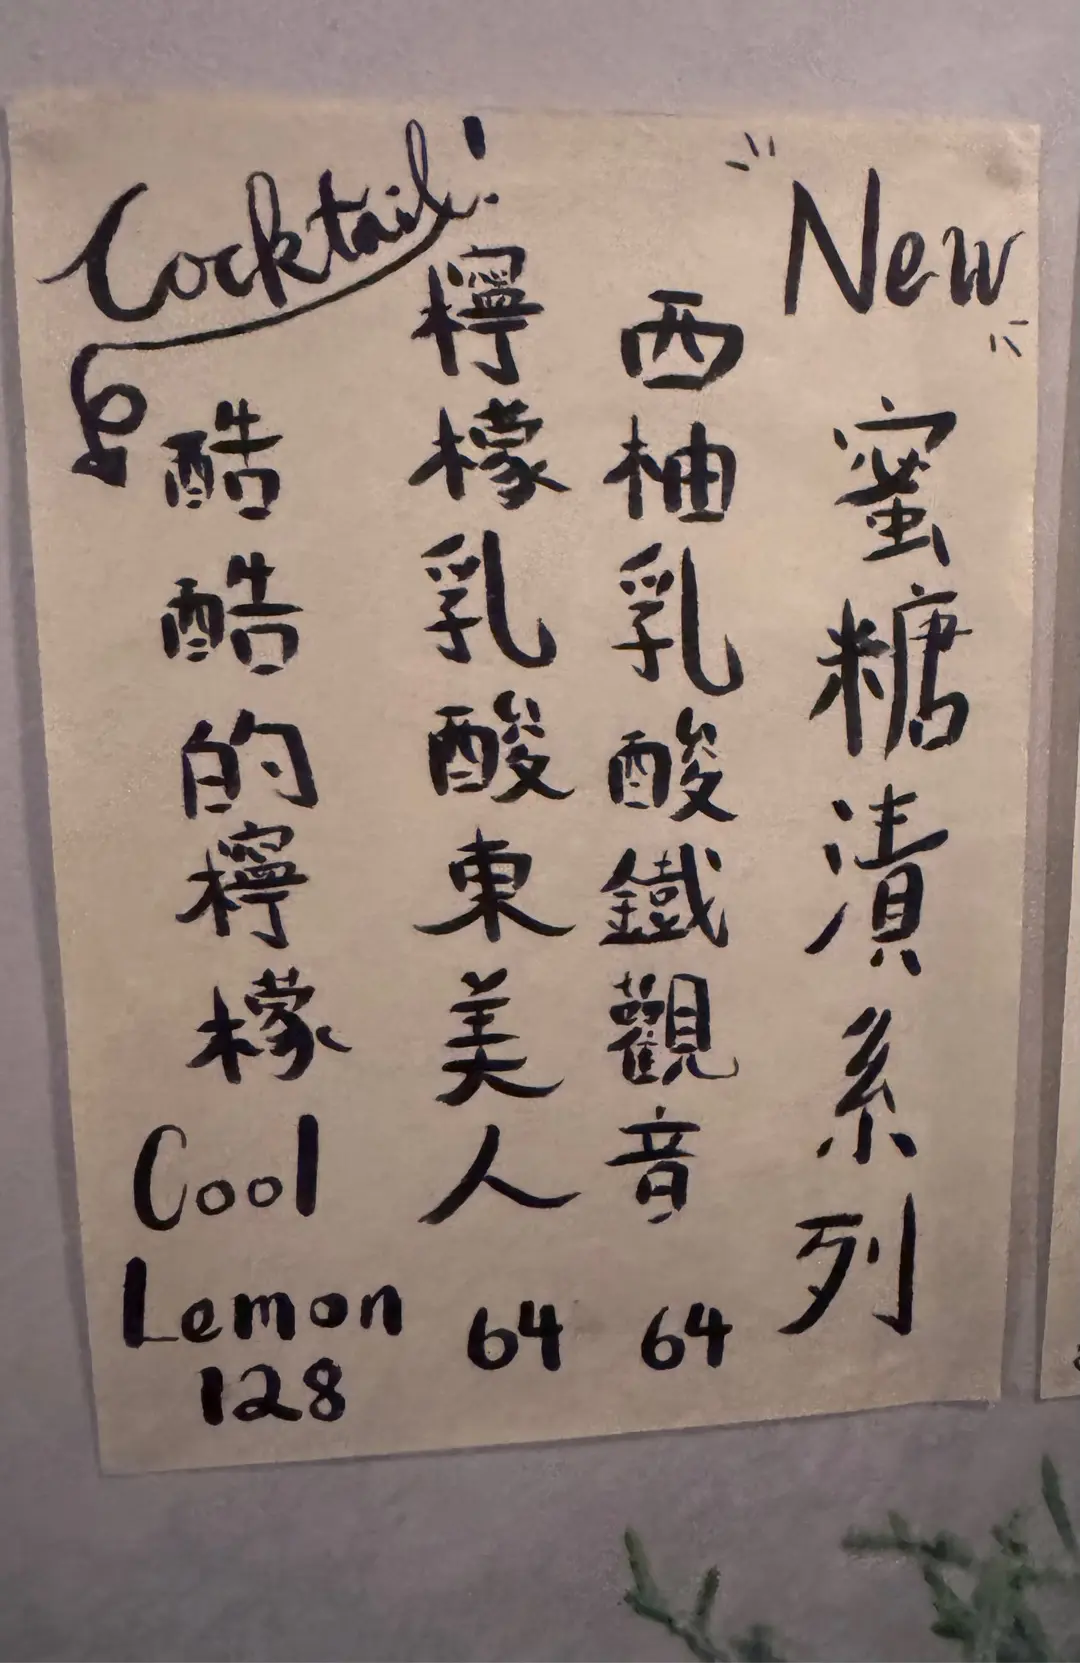 New
蜜糖漬系列
西柚乳酸鐵觀音
64
檸檬乳酸東美人
64
Cocktail!
酷酷的檸檬
Cool
Lemon
128